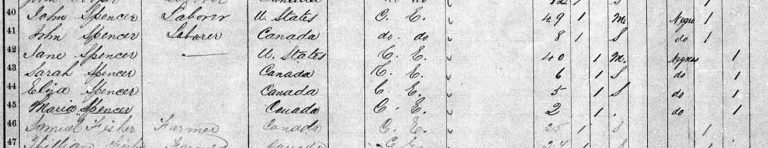 40 John Spencer Laborer U. States C. E. 49 1 M. Negro 1
41 John Spencer Laborer Canada do. do 8 1 S do 1
42 Jane Spencer — U. States C. E. 40 1 M. Negress 1
43 Sarah Spencer Canada C. E. 6 1 S do 1
44 Eliza Spencer Canada C. E. 5 1 S do 1
45 Maria Spencer Canada C. E. 2 1 . do 1
46 Samuel Fisher Farmer Canada C. E. 25 1 S
47 William